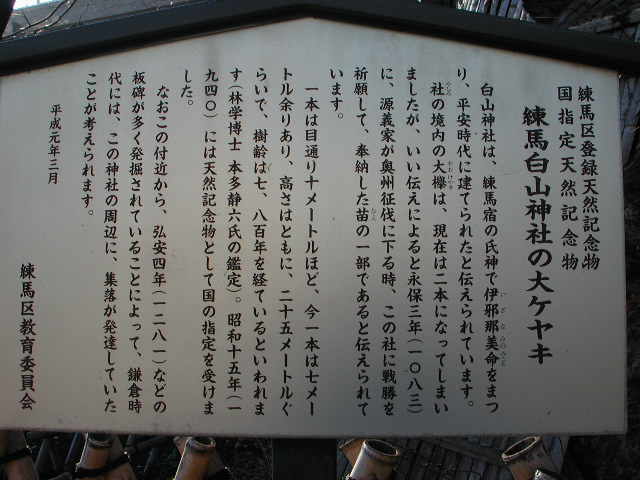 練馬区登録天然記念物
国指定天然記念物
練馬白山神社の大ケヤキ
白山神社は、練馬宿の氏神で伊邪那美命をまつ
いざなみのみこと
り、平安時代に建てられたと伝えられています。
社の境内の大欅は、現在は二本になってしまい
おおけやき
ましたが、いい伝えによると永保三年(一〇八三)
に、源義家が奥州征伐に下る時、この社に戦勝を
祈願して、奉納した苗の一部であると伝えられて
います。
一本は目通り十メートルほど、今一本は七メー
トル余りあり、高さはともに、二十五メートルぐ
らいで、樹齢は七、八百年を経ているといわれま
す(林学博士 本多静六氏の鑑定)。昭和十五年(一
九四〇)には天然記念物として国の指定を受けま
した。
なおこの付近から、弘安四年(一二八一)などの
板碑が多く発掘されていることによって、鎌倉時
代には、この神社の周辺に、集落が発達していた
ことが考えられます。
平成元年三月
練馬区教育委員会